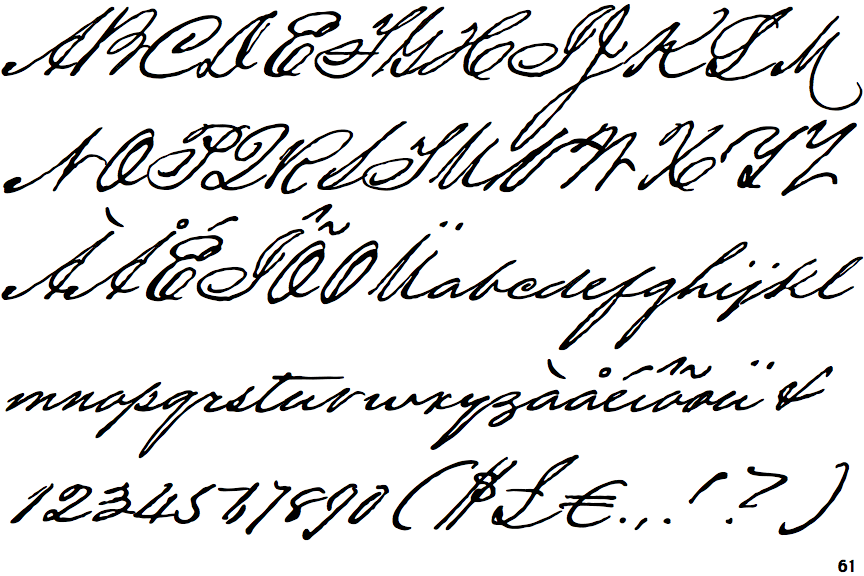 ABCDEFGHIJKLM
NOPQRSTUVWXYZ
ÀÅÉÎÕØÜabcdefghijkl
mnopqrstuvwxyzàåéîõøü&
1234567890($£€.,!?)
61